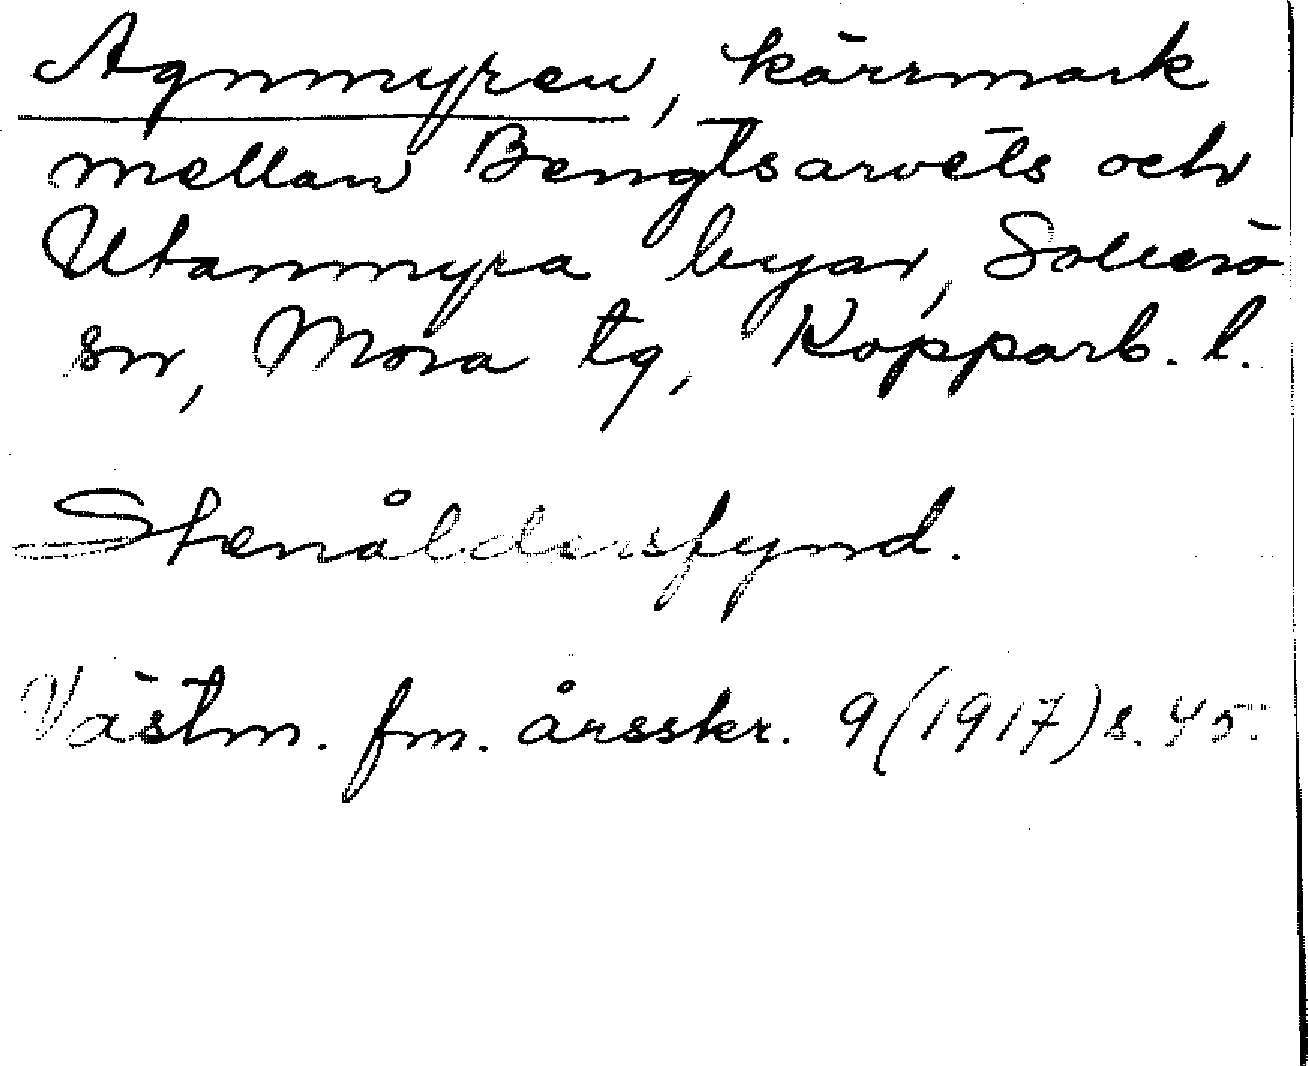 Agnmyren, kärrmark
mellan Bengtsarvets och
Utanmyra byar, Sollerö
sn, Mora tg, Kopparb. l.
Stenåldersfynd.
Västm. fm. årsskr. 9 (1917) s. 45.